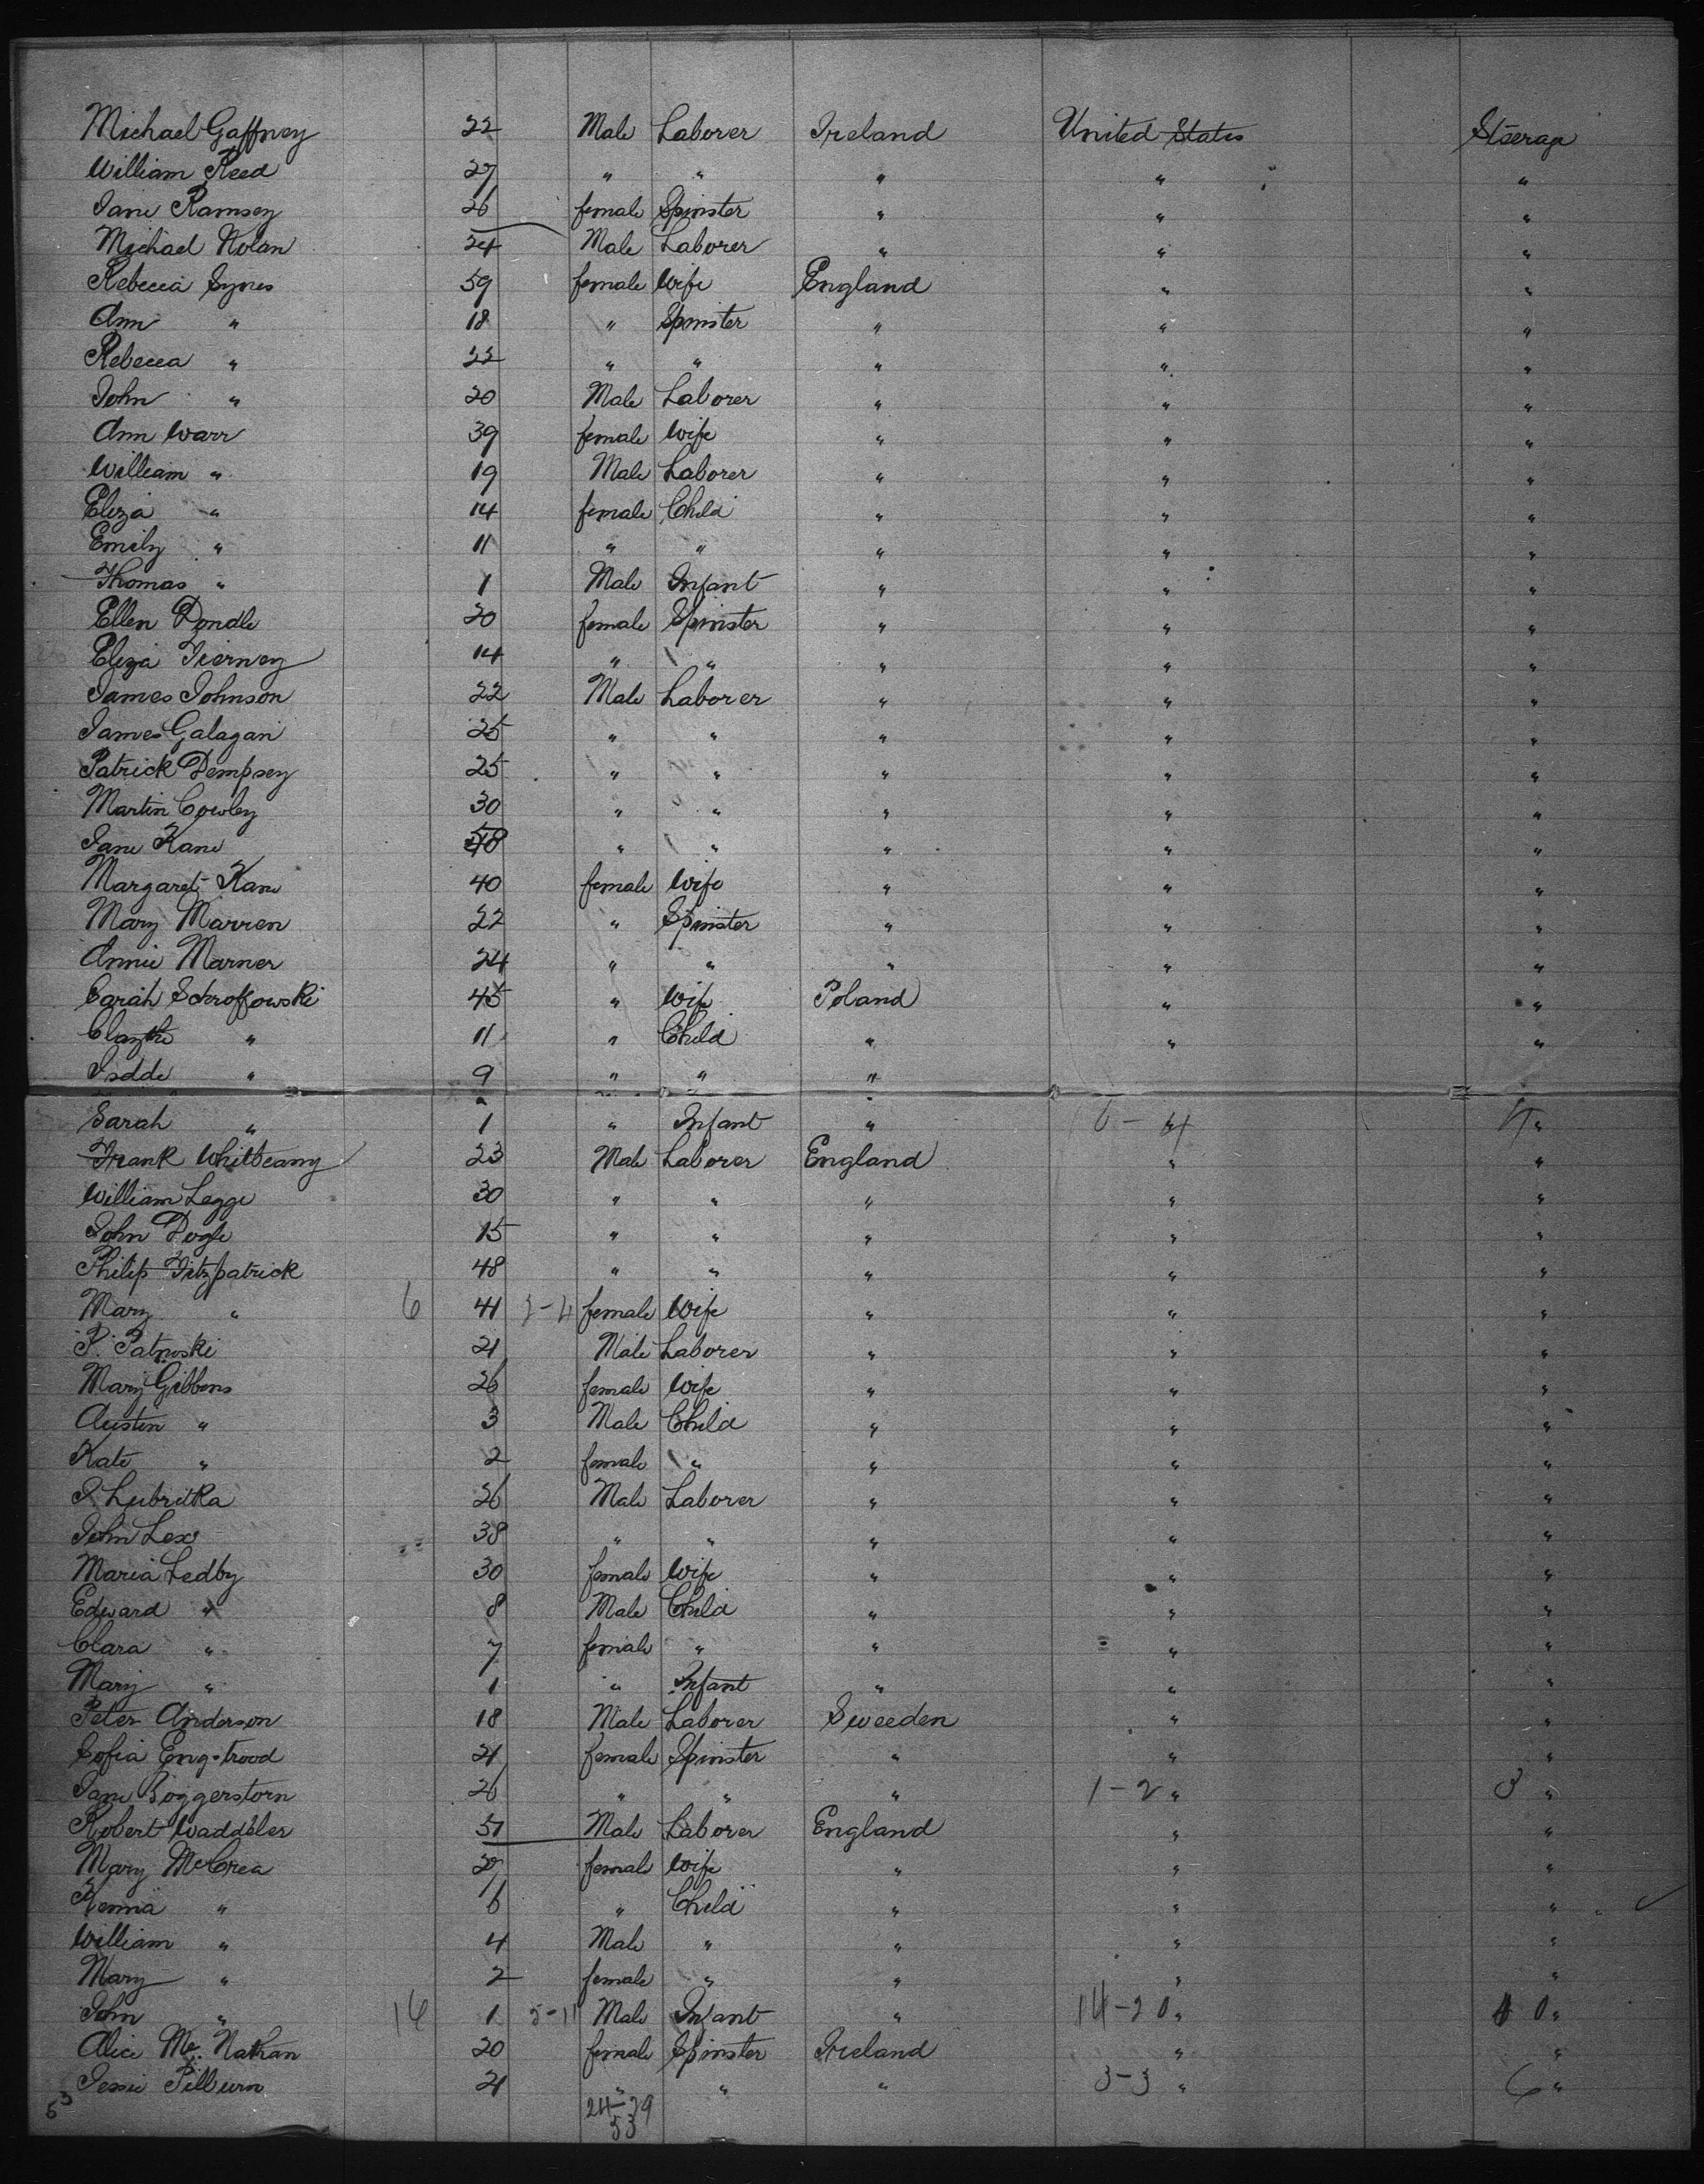 Michael Gaffney 22 Male Laborer Ireland United States Steerage
William Reed 27 " " " " "
Jane Ramsey 26 female Spinster " " "
Michael Nolan 24 Male Laborer " " "
Rebecca Synes 59 female Wife England " "
Ann " 18 " Spinster " " "
Rebecca " 22 " " " " "
John " 20 Male Laborer " " "
Ann Warr 39 female Wife " " "
William " 19 Male Laborer " " "
Eliza " 14 female Child " " "
Emily " 11 " " " " "
Thomas " 1 Male Infant " " "
Ellen Dondle 20 female Spinster " " "
Eliza Tierney 14 " " " " "
James Johnson 22 Male Laborer " " "
James Galagan 25 " " " " "
Patrick Dempsey 25 " " " " "
Martin Cowley 30 " " " " "
Jane Kane " " " " "
Margaret Kane 40 female Wife " " "
Mary Marren 22 " Spinster " " "
Annie Marner 24 " " " " "
Sarah Schroffowski 45 " Wife Poland " "
" 11 " Child " " "
Isdde " 9 " " "
Sarah " 1 " Infant " 6-4 "
Frank Whitbeamy 23 Male Laborer England " "
William Legge 30 " " " " "
John Dogle 15 " " " " "
Philip Fitzpatrick 48 " " " " "
Mary " 6 41 2-4 female Wife " " "
P. Patnoski 21 Male Laborer " " "
Mary Gibbons 26 female Wife " " "
Austin " 3 Male Child " " "
Kate " 2 female " " " "
I. Lubritka 26 Male Laborer " " "
John Lex 38 " " " " "
Maria Ledby 30 female Wife " " "
Edward " 8 Male Child " " "
Clara " 7 female " " " "
Mary " 1 " Infant " " "
Peter Anderson 18 Male Laborer Sweeden " "
Sofia Eng-trood 21 female Spinster " " "
Jane Boggerstorn 26 " " " 1-2 " 3 "
Robert Waddbler 31 Male Laborer England " "
Mary McCrea 27 female Wife " " "
" 6 " Child " " "
William " 4 Male " " " "
Mary " 2 female " " " "
John " 16 1 5-11 Male Infant " 14-20 " 40 "
Alice Mc. Nathan 20 female Spinster Ireland " "
Jessie Pillburn 21 " " " 3-3 " 6 "
53 24-29
53